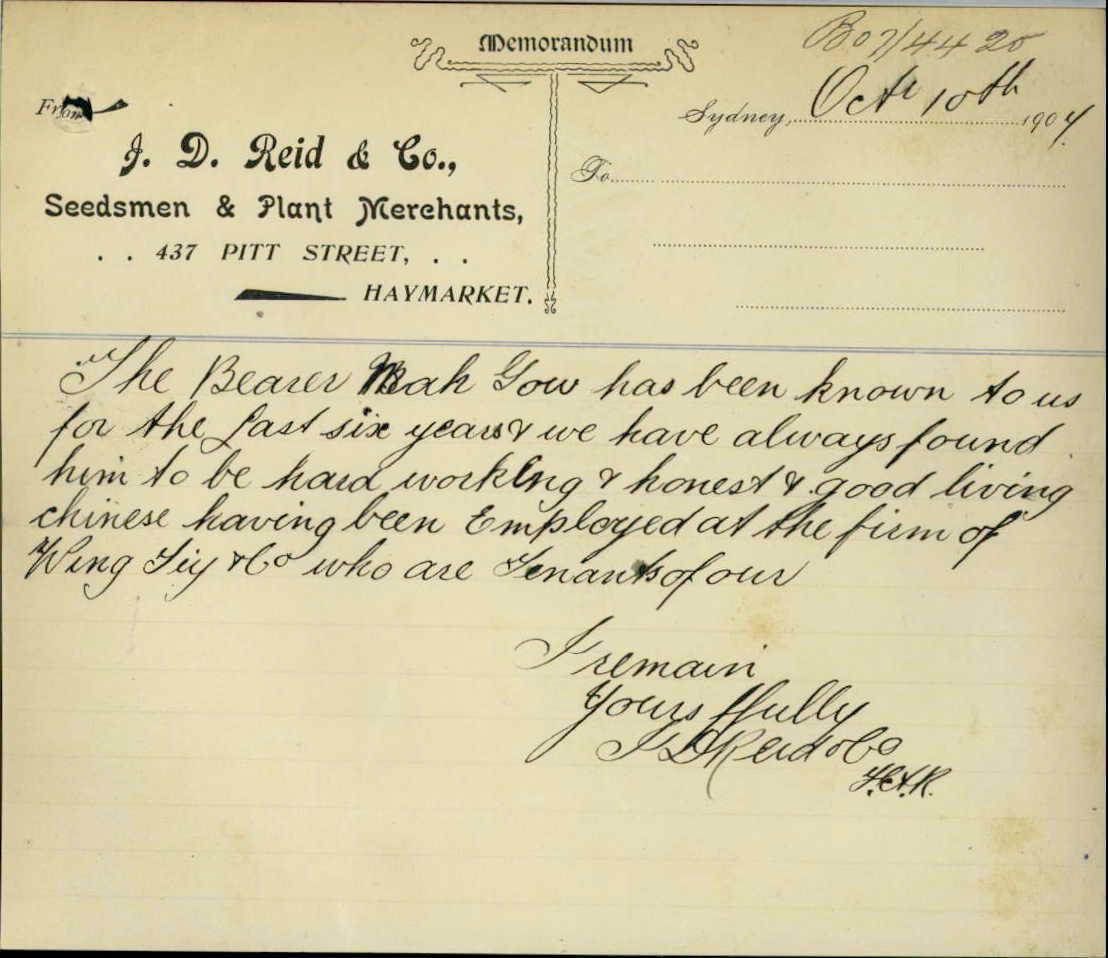 Memorandum
B07/4420
From
Sydney, Oct 10th 1907.
J. D. Reid & Co.,
To
Seedsmen & Plant Merchants,
. . 437 PITT STREET, . .
HAYMARKET.
The Bearer Mah Gow has been known to us
for the last six years & we have always found
him to be hard working & honest & good living
chinese having been Employed at the firm of
Wing Tiy & Co who are Tenants of our
I remain
Yours ffully
J D Reid & Co